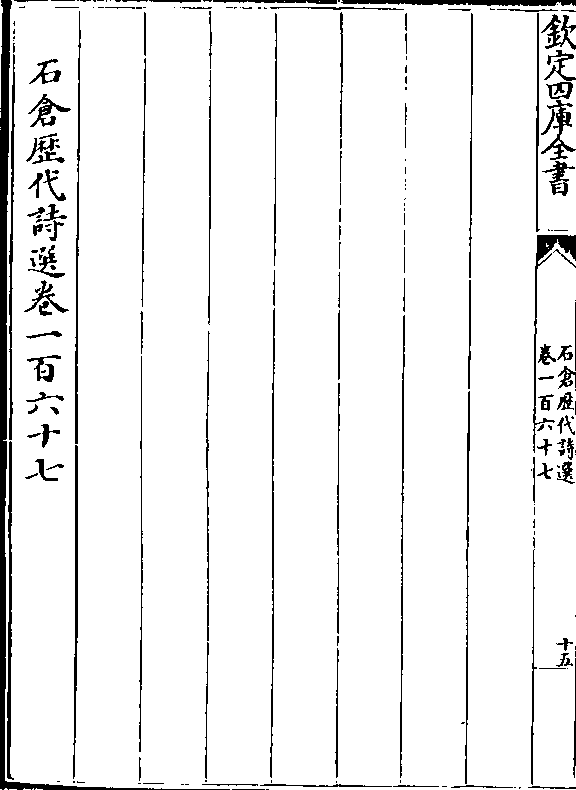 欽定四庫全書
石倉歴代詩選
卷一百六十七
十五
石倉歴代詩選卷一百六十七